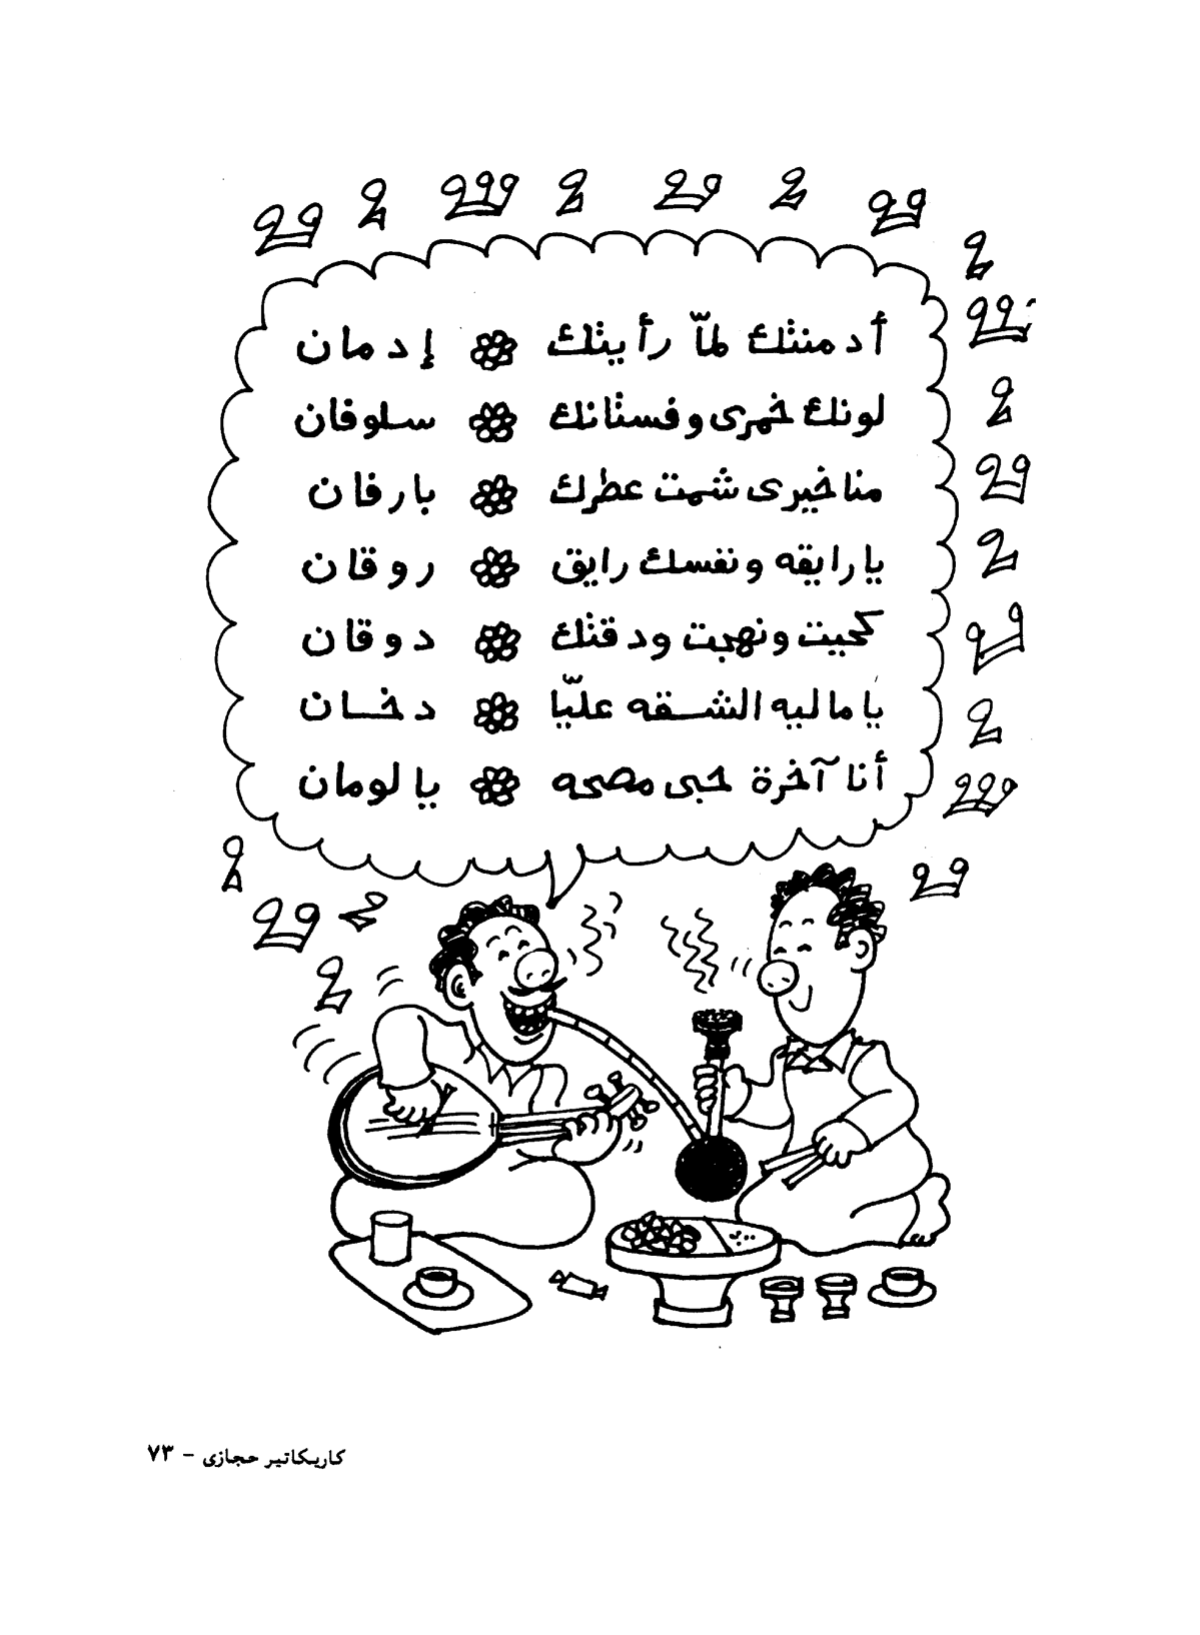 أدمنتك لمّا رأيتك إدمان
لونك خمرى وفستانك سلوفان
مناخيرى شمت عطرك بارفان
يا رايقه ونفسك رايق روقان
كحيت ونهجت ودقتك دوقان
يا ماليه الشقه عليّا دخان
أنا آخرة حبى مصحه يا لومان
كاريكاتير حجازى - ٧٣